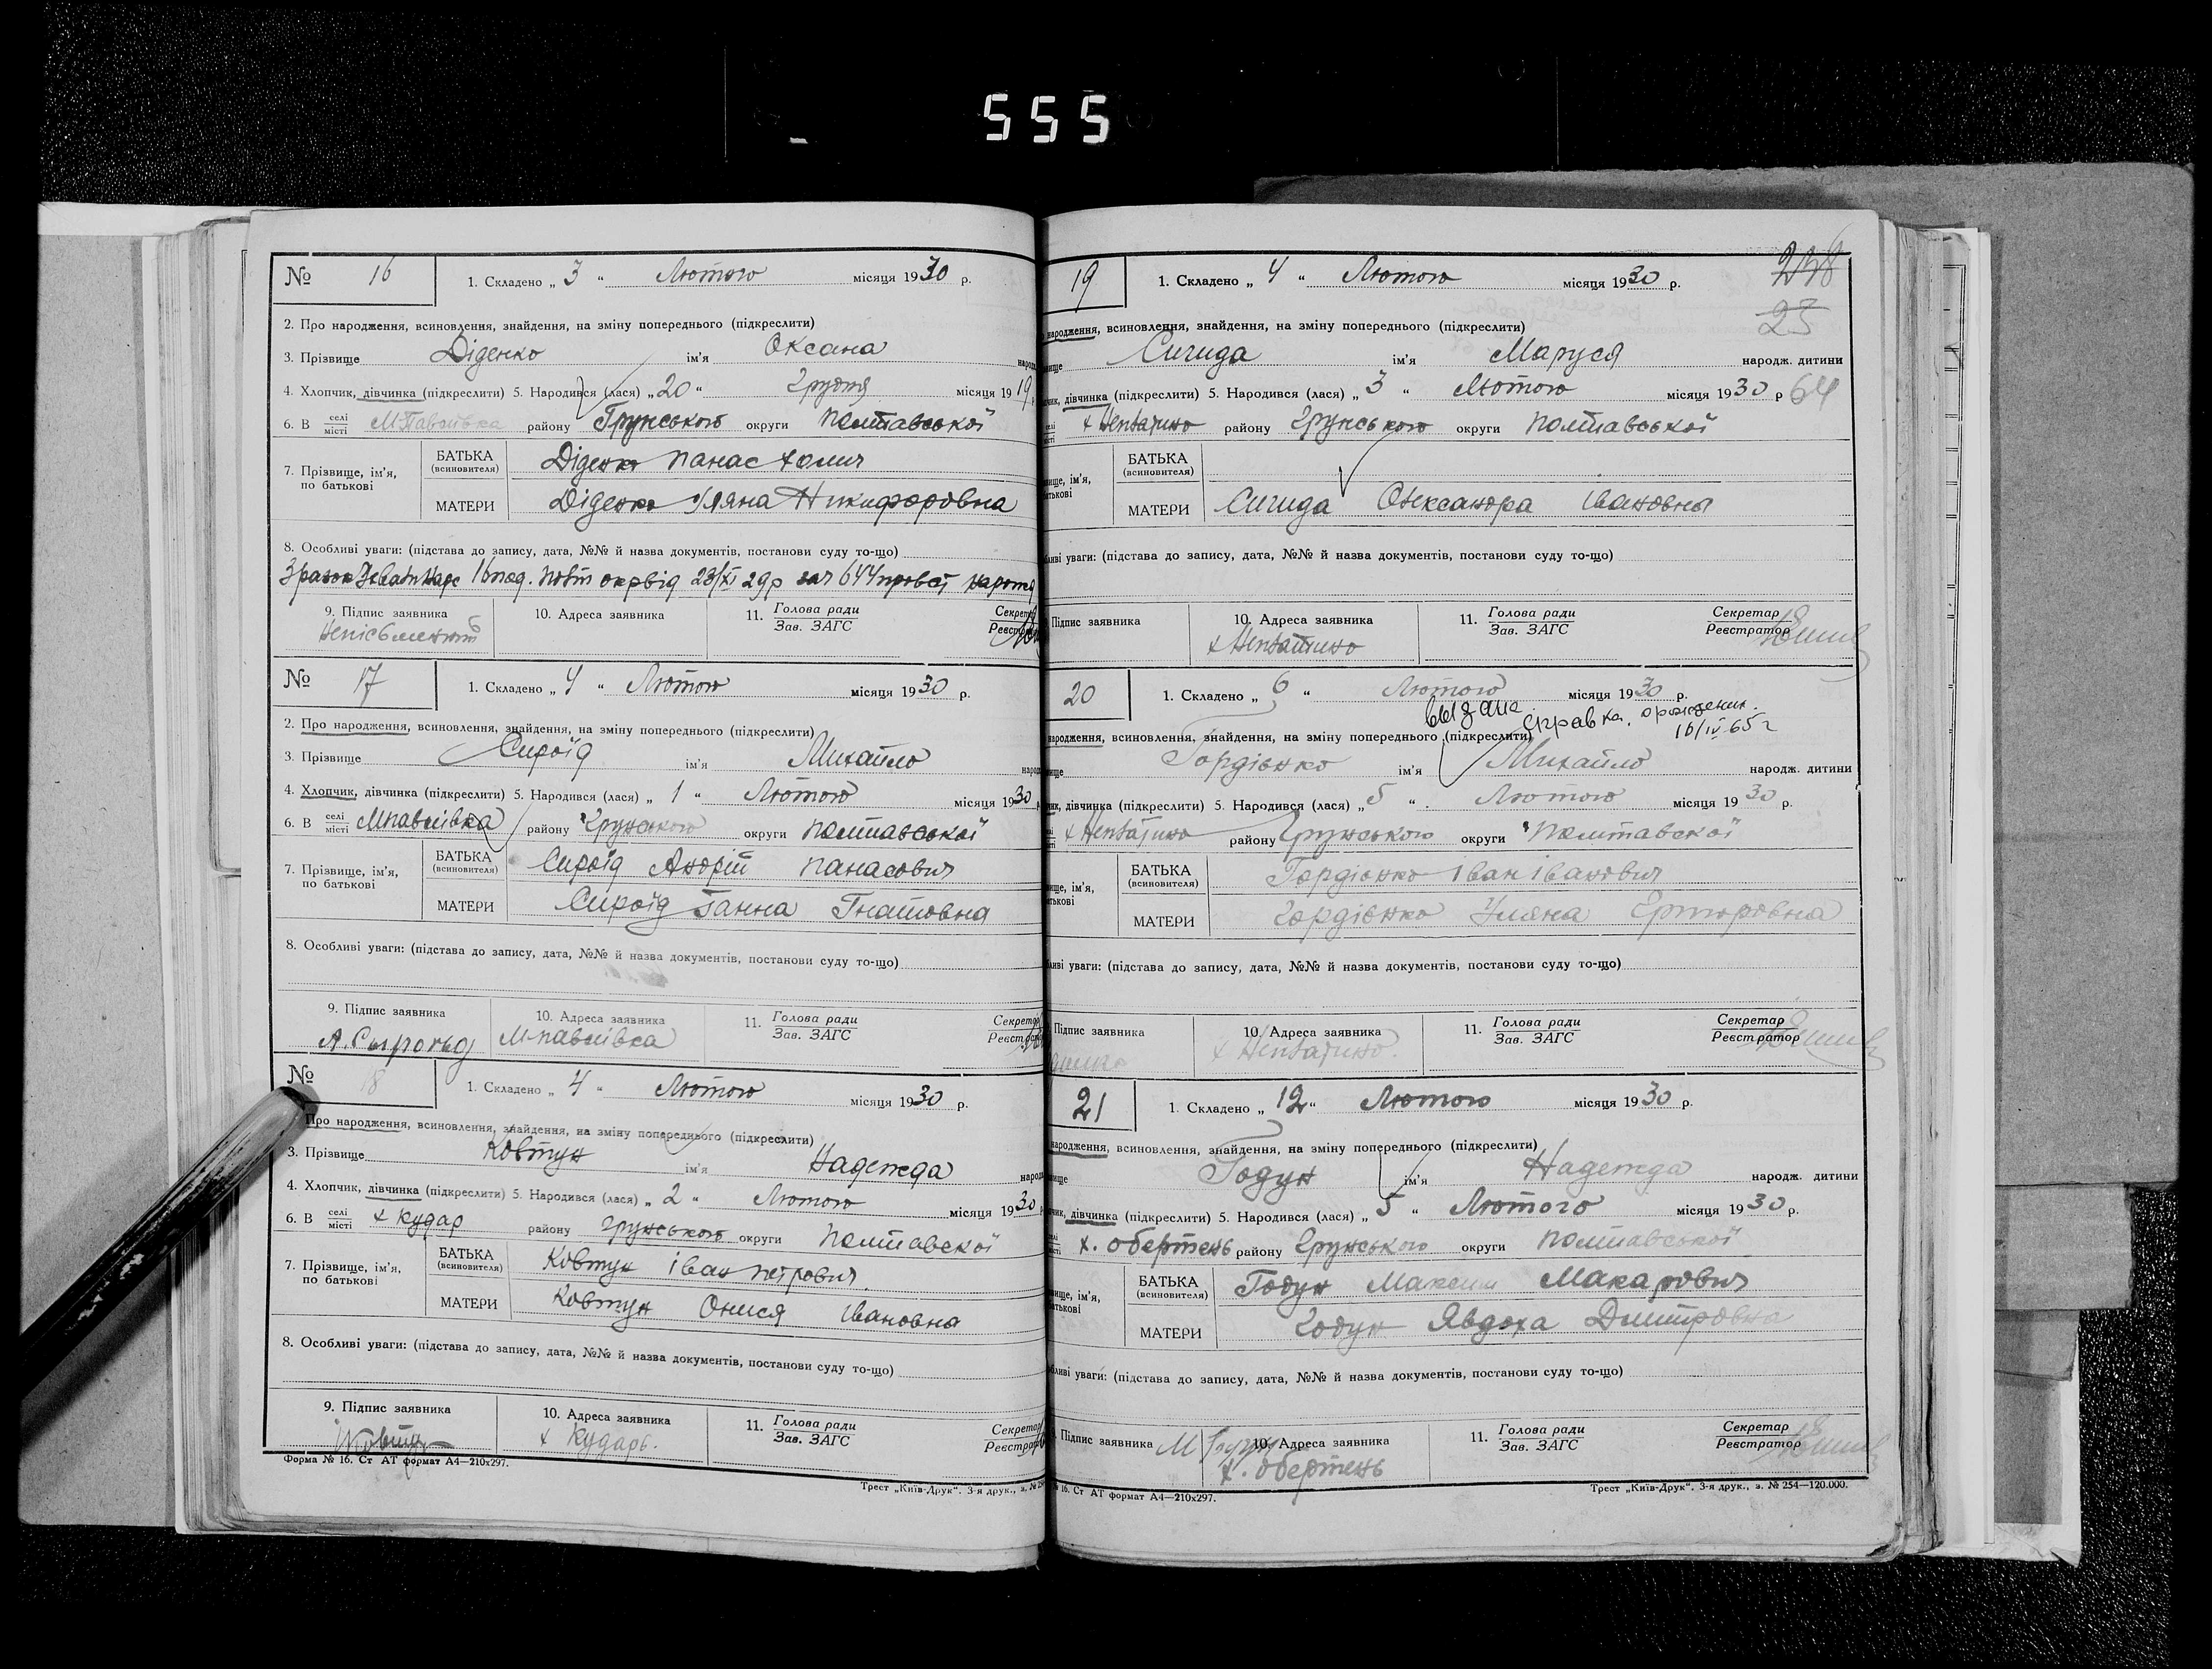 555
№ 16 1. Складено „ 3 “ Лютого місяця 1930 р.
2. Про народження, всиновлення, знайдення, на зміну попереднього (підкреслити)
3. Прізвище Діденко ім'я Оксана народ
4. Хлопчик, дівчинка (підкреслити) 5. Народився (лася) „ 20 “ Грудня місяця 19 19
6. В селі місті району Грунського округи Полтавської
7. Прізвище, ім'я, по батькові
БАТЬКА (всиновителя) Діденко Панас
МАТЕРИ Діденко Уляна Никифоровна
8. Особливі уваги: (підстава до запису, дата, №№ й назва документів, постанови суду то-що)
9. Підпис заявника 10. Адреса заявника 11. Голова ради Зав. ЗАГС
№ 17 1. Складено „ 4 “ Лютого місяця 1930 р.
2. Про народження, всиновлення, знайдення, на зміну попереднього (підкреслити)
3. Прізвище Сироїд ім'я Михайло народ
4. Хлопчик, дівчинка (підкреслити) 5. Народився (лася) „ 1 “ Лютого місяця 1930
6. В селі місті Мпавлівка району Грунського округи Полтавської
7. Прізвище, ім'я, по батькові
БАТЬКА (всиновителя) Сироїд Андрій Панасович
МАТЕРИ Сироїд Ганна Гнатовна
8. Особливі уваги: (підстава до запису, дата, №№ й назва документів, постанови суду то-що)
9. Підпис заявника 10. Адреса заявника 11. Голова ради Зав. ЗАГС
А. Сыроъд Мпавлівка
№ 18 1. Складено „ 4 “ Лютого місяця 1930 р.
Про народження, всиновлення, знайдення, на зміну попереднього (підкреслити)
3. Прізвище Ковтун ім'я Надежда народ
4. Хлопчик, дівчинка (підкреслити) 5. Народився (лася) „ 2 “ Лютого місяця 1930
6. В селі місті х Кудар району Грунського округи Полтавської
7. Прізвище, ім'я, по батькові
БАТЬКА (всиновителя) Ковтун Іван Петрович
МАТЕРИ Ковтун Онися Івановна
8. Особливі уваги: (підстава до запису, дата, №№ й назва документів, постанови суду то-що)
9. Підпис заявника 10. Адреса заявника 11. Голова ради Зав. ЗАГС
х Кударь.
Форма № 16. Ст АТ формат А4—210x297.
Трест „Київ-Друк“. 3-я друк., з. №
19 1. Складено „ 4 “ Лютого місяця 1930 р.
25
народження, всиновлення, знайдення, на зміну попереднього (підкреслити)
Сигида ім'я Маруся народж. дитини
дівчинка (підкреслити) 5. Народився (лася) „ 3 “ Лютого місяця 1930 р 64
району Грунського округи Полтавської
БАТЬКА (всиновителя)
МАТЕРИ Сигида Олександра Івановна
уваги: (підстава до запису, дата, №№ й назва документів, постанови суду то-що)
Підпис заявника 10. Адреса заявника 11. Голова ради Зав. ЗАГС Секретар Реєстратор
20 1. Складено „ 6 “ Лютого місяця 1930 р.
выдана справка. о рожении. 16/IV 65 г
народження, всиновлення, знайдення, на зміну попереднього (підкреслити)
Гордієнко ім'я Михайло народж. дитини
дівчинка (підкреслити) 5. Народився (лася) „ 5 “ Лютого місяця 1930 р.
району Грунського округи Полтавской
БАТЬКА (всиновителя) Гордієнко Іван Іванович
МАТЕРИ Гордієнко Уляна
уваги: (підстава до запису, дата, №№ й назва документів, постанови суду то-що)
Підпис заявника 10. Адреса заявника 11. Голова ради Зав. ЗАГС Секретар Реєстратор
21 1. Складено „ 12 “ Лютого місяця 1930 р.
народження, всиновлення, знайдення, на зміну попереднього (підкреслити)
Годун ім'я Надежда народж. дитини
дівчинка (підкреслити) 5. Народився (лася) „ 5 “ Лютого місяця 1930 р.
х. Обертень району Грунського округи Полтавської
БАТЬКА (всиновителя) Годун Максим Макарович
МАТЕРИ Годун Явдоха Дмитровна
уваги: (підстава до запису, дата, №№ й назва документів, постанови суду то-що)
Підпис заявника М Годун 10. Адреса заявника 11. Голова ради Зав. ЗАГС Секретар Реєстратор
х. Обертень
16. Ст АТ формат А4—210x297.
Трест „Київ-Друк“. 3-я друк., з. № 254—120.000.